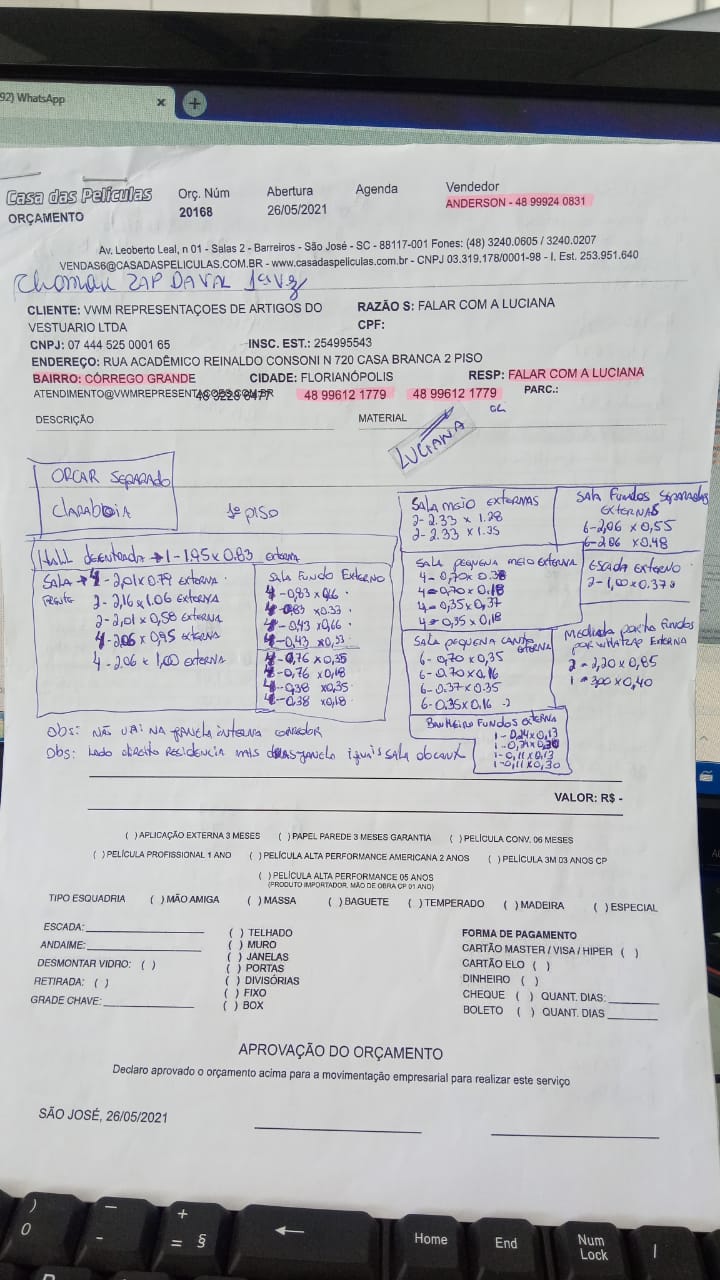 92) WhatsApp x +
Casa das Películas Orç. Núm Abertura Agenda Vendedor
ORÇAMENTO 20168 26/05/2021 ANDERSON - 48 99924 0831
Av. Leoberto Leal, n 01 - Salas 2 - Barreiros - São José - SC - 88117-001 Fones: (48) 3240.0605 / 3240.0207
VENDAS6@CASADASPELICULAS.COM.BR - www.casadaspeliculas.com.br - CNPJ 03.319.178/0001-98 - I. Est. 253.951.640
ZAP DA VAL
CLIENTE: VWM REPRESENTAÇOES DE ARTIGOS DO RAZÃO S: FALAR COM A LUCIANA
VESTUARIO LTDA CPF:
CNPJ: 07 444 525 0001 65 INSC. EST.: 254995543
ENDEREÇO: RUA ACADÊMICO REINALDO CONSONI N 720 CASA BRANCA 2 PISO
BAIRRO: CÓRREGO GRANDE CIDADE: FLORIANÓPOLIS RESP: FALAR COM A LUCIANA
48 99612 1779 48 99612 1779 PARC.:
DESCRIÇÃO MATERIAL
LUCIANA
ORCAR SEPARADO
CLARABOIA
1º PISO
SALA MEIO EXTERNAS
2-2.33 x 1.28
2-2.33 x 1.35
SALA FUNDOS SEPARADAS
EXTERNAS
6-2,06 x 0,55
6-2.06 x 0.48
HALL DE ENTRADA → 1-1.95 x 0.83 EXTERNA
SALA → 4-2,01 x 0.79 EXTERNA
FRENTE 2-2,16 x 1.06 EXTERNA
2-2,01 x 0,58 EXTERNA
4-2.06 x 0,95 EXTERNA
4-2.06 x 1,00 EXTERNA
SALA FUNDO EXTERNO
4-0,83 x 0,66
4-0,83 x 0.33
4-0,43 x 0,66
4-0,43 x 0,33
4-0,76 x 0,35
4-0,76 x 0,18
4-0,38 x 0,35
4-0,38 x 0,18
SALA PEQUENA MEIO EXTERNA
4-0,70 x 0.38
4-0,70 x 0.18
4-0,35 x 0,37
4-0,35 x 0,18
ESCADA EXTERNO
2-1,00 x 0.37
SALA PEQUENA CANTO EXTERNA
6-0,70 x 0,35
6-0.70 x 0.16
6-0.37 x 0.35
6-0.35 x 0,16
MEDIDA PORTA FUNDOS
POR WHATZAP EXTERNA
2-2,20 x 0,85
1-3,00 x 0,40
BANHEIRO FUNDOS EXTERNA
1-0,24 x 0,13
1-0,74 x 0,30
1-0,11 x 0,13
1-0,11 x 0,30
Obs: NÃO VAI NA JANELA INTERNA CORREDOR
Obs: LADO DIREITO RESIDENCIA MAIS DUAS JANELA IGUAIS SALA
VALOR: R$ -
( ) APLICAÇÃO EXTERNA 3 MESES ( ) PAPEL PAREDE 3 MESES GARANTIA ( ) PELÍCULA CONV. 06 MESES
( ) PELÍCULA PROFISSIONAL 1 ANO ( ) PELÍCULA ALTA PERFORMANCE AMERICANA 2 ANOS ( ) PELÍCULA 3M 03 ANOS CP
( ) PELÍCULA ALTA PERFORMANCE 05 ANOS
(PRODUTO IMPORTADOR, MÃO DE OBRA CP 01 ANO)
TIPO ESQUADRIA ( ) MÃO AMIGA ( ) MASSA ( ) BAGUETE ( ) TEMPERADO ( ) MADEIRA ( ) ESPECIAL
ESCADA: ( ) TELHADO FORMA DE PAGAMENTO
ANDAIME: ( ) MURO CARTÃO MASTER / VISA / HIPER ( )
DESMONTAR VIDRO: ( ) ( ) JANELAS CARTÃO ELO ( )
( ) PORTAS DINHEIRO ( )
RETIRADA: ( ) ( ) DIVISÓRIAS CHEQUE ( ) QUANT. DIAS:
GRADE CHAVE: ( ) FIXO BOLETO ( ) QUANT. DIAS
( ) BOX
APROVAÇÃO DO ORÇAMENTO
Declaro aprovado o orçamento acima para a movimentação empresarial para realizar este serviço
SÃO JOSÉ, 26/05/2021
) 0 - + = § ← Home End Num Lock